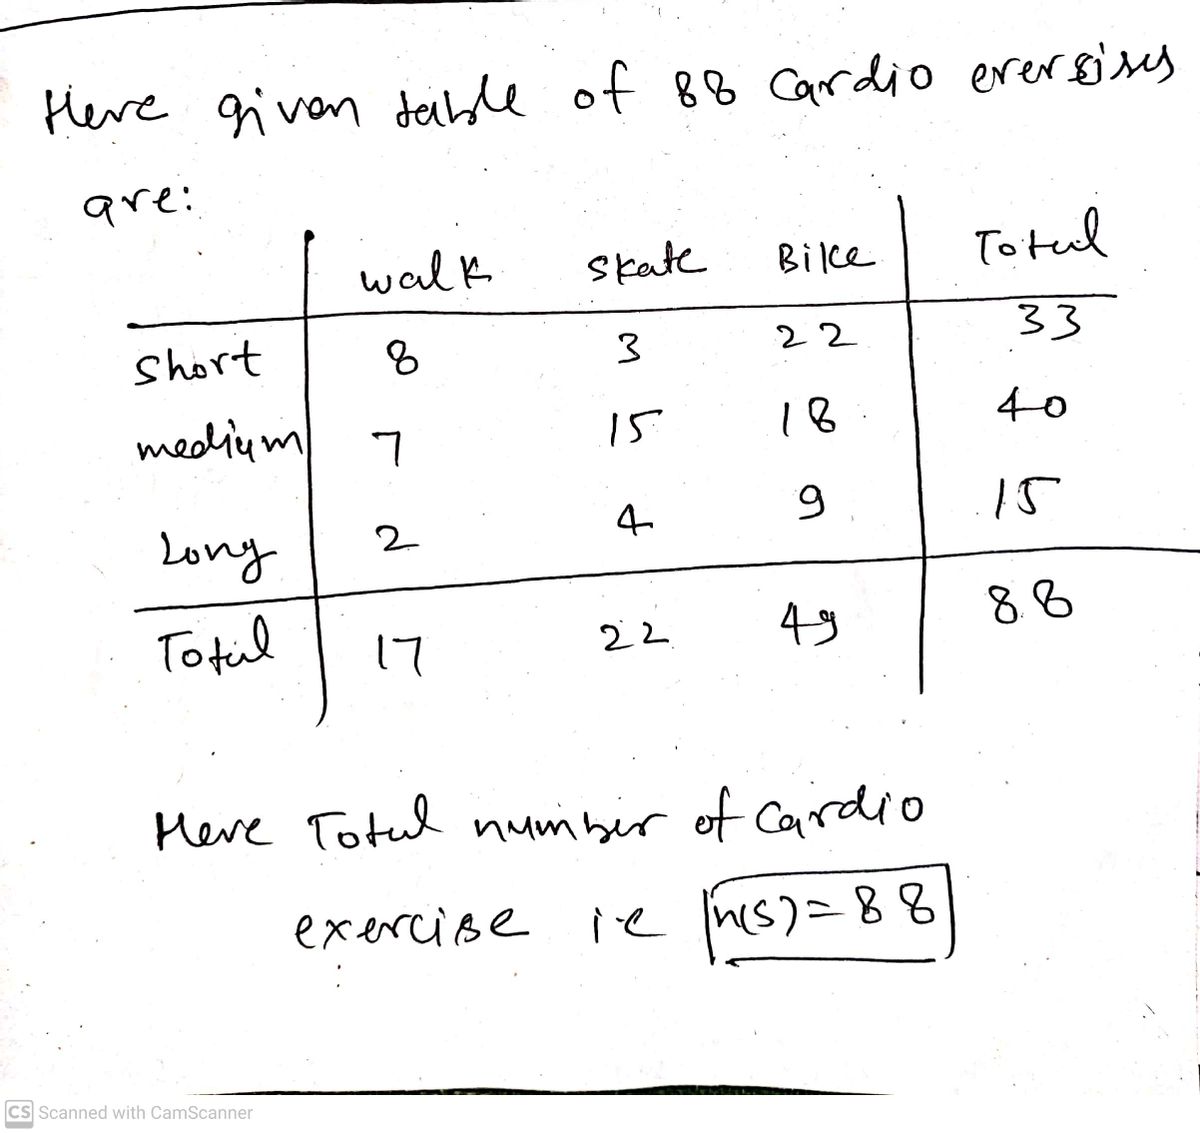 Here given table of 88 Cardio exersises
are:
walk Skate Bike Total
Short 8 3 22 33
medium 7 15 18 40
Long 2 4 9 15
Total 17 22 49 88
Here Total number of Cardio
exercise ie n(s)=88
CS Scanned with CamScanner